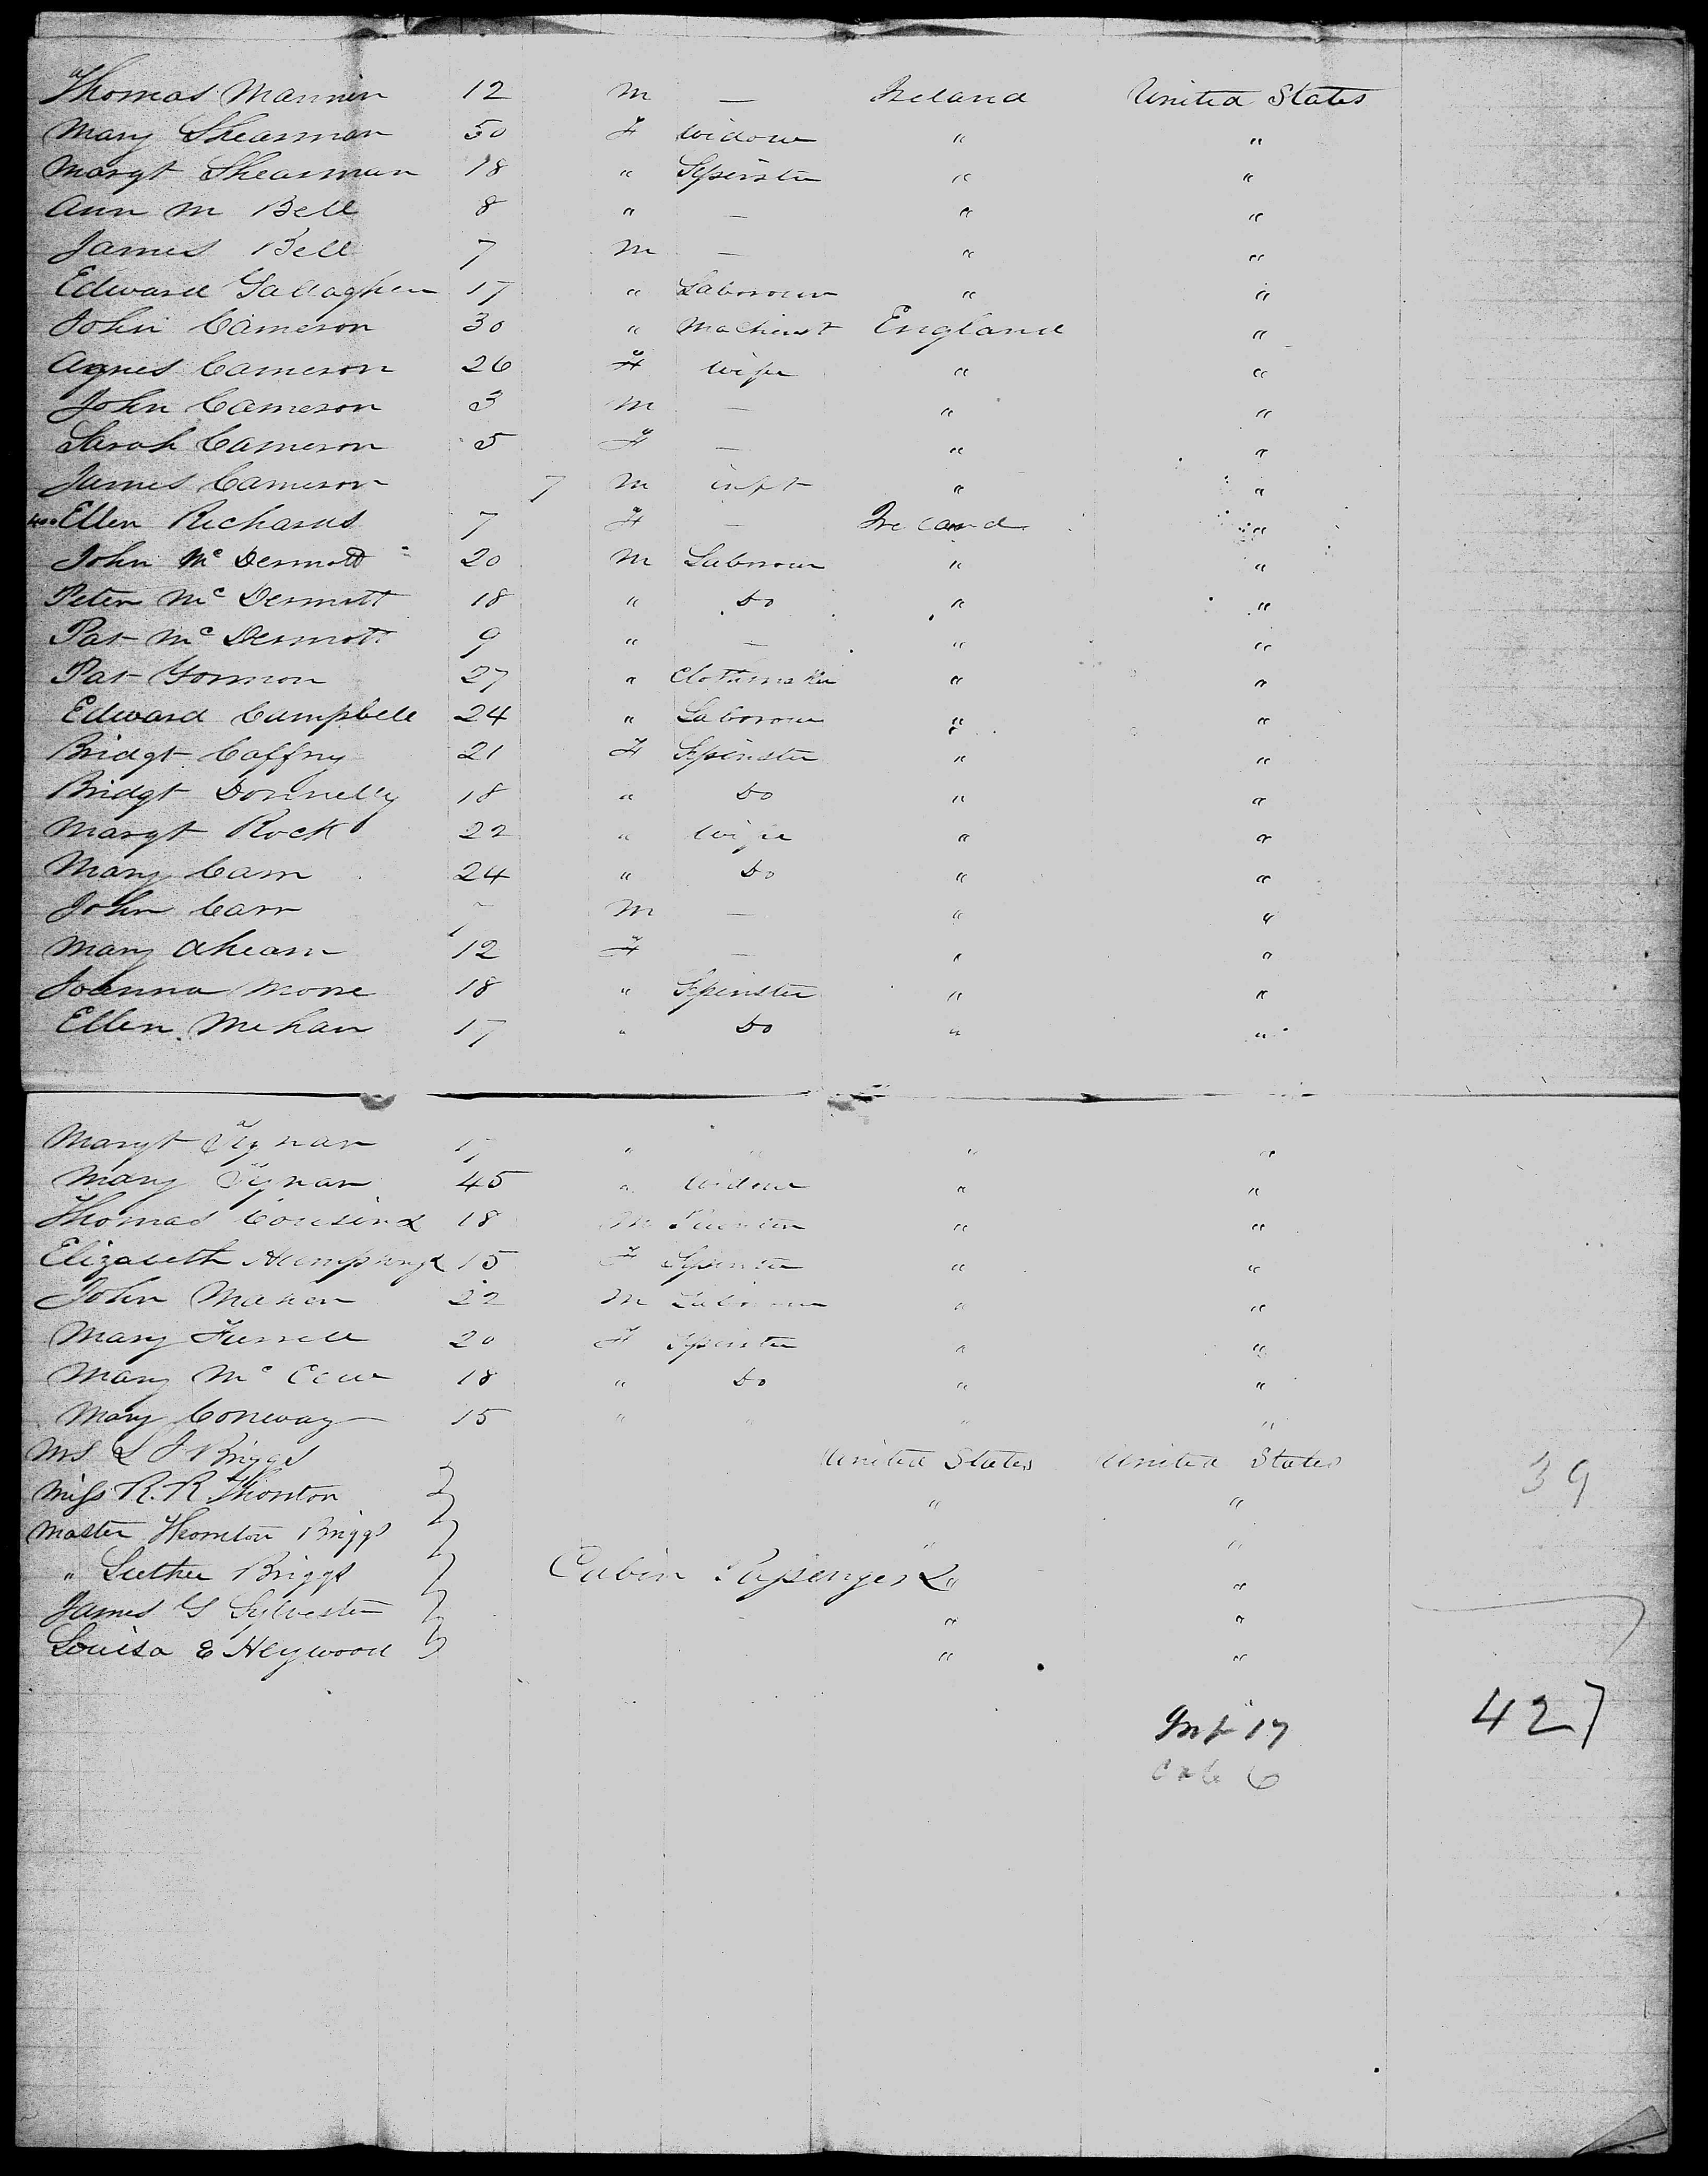 Thomas Mannin 12 M — Ireland United States
Mary Shearman 50 F Widow " "
Margt Shearman 18 " Spinster " "
Ann M Bell 8 " — " "
James Bell 7 M — " "
Edward Gallagher 17 " Labourer " "
John Cameron 30 " Machinist England "
Agnes Cameron 26 F Wife " "
John Cameron 3 M — " "
Sarah Cameron 5 F — " "
James Cameron 7 M inft " "
Ellen Richards 7 F — Ireland "
John Mc Dermott 20 M Labourer " "
Peter Mc Dermott 18 " Do " "
Pat Mc Dermott 9 " — " "
Pat Gormon 27 " Clothmaker " "
Edward Campbell 24 " Labourer " "
Bridgt Caffry 21 F Spinster " "
Bridgt Donnelly 18 " Do " "
Margt Rock 22 " Wife " "
Mary Carr 24 " Do " "
John Carr M — " "
Mary Ahearn 12 F — " "
Joanna Moore 18 " Spinster " "
Ellen Mehan 17 " Do " "
Margt Tynan 17 " " " "
Mary Tynan 45 " Widow " "
Thomas Cousins 18 M " "
Elizabeth Humphrys 15 F Spinster " "
John Maher 22 M Labourer " "
Mary Furrell 20 F Spinster " "
Mary Mc 18 " Do " "
Mary Conway 15 " " " "
Ms L J Briggs United States United States 39
Miss R. R. Thornton " "
Master Thornton Briggs " "
" Luther Briggs Cabin Passengers " "
James G Sylvester " "
Louisa E Heywood " "
Inf 17 427
Cab 6